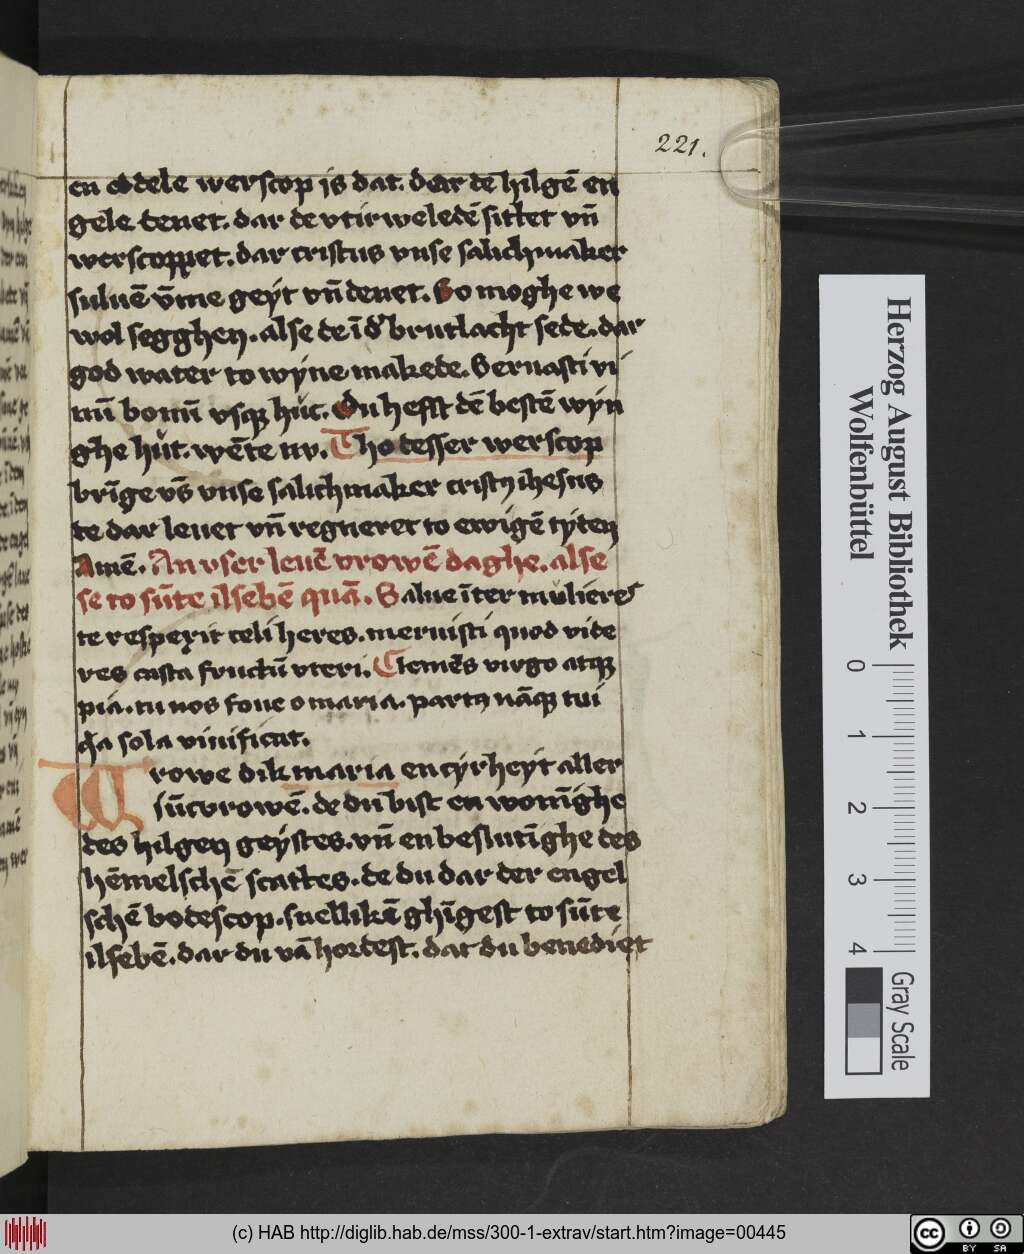 221.
en eddele werscop is dat. dar dē hilgē en
gele denet. dar de vtirweledē sittet vn̄
werscoppet. dar cristus vnse salichmaker
suluē v̄me geyt vn̄ denet. So moghe we
wol segghen. alse de ī d' brutlacht sede. dar
god water to wyne makede. Seruasti vi
nū bonū vsqꝫ huc. Du hefft dē bestē wyn
ghe hut. wēte nv. Tho desser werscop
brīge vs̄ vnse salichmaker cristꝰ ihesus
de dar leuet vn̄ regneret to ewigē tyten
Amē. An vser leuē vrowē daghe. alse
se to sūte ilsebē quā. Salue īter mulieres
te respexit celi heres. meruisti quod vide
res casta fructū vteri. Clemēs virgo atqꝫ
pia. tu nos foue o maria. partꝰ nāqꝫ tui
q̄a sola viuificat.
Vrowe dik maria en cyrheyt aller
jūcvrowē. de du bist en wonīghe
des hilgen geystes. vn̄ en beslutīghe des
hēmelschē scattes. de du dar der engel
schē bodescop. snellikē ghīgest to sūte
ilsebē. dar du vā hordest. dat du benediet
Herzog August Bibliothek
Wolfenbüttel
0 1 2 3 4
Gray Scale
(c) HAB http://diglib.hab.de/mss/300-1-extrav/start.htm?image=00445
cc BY SA